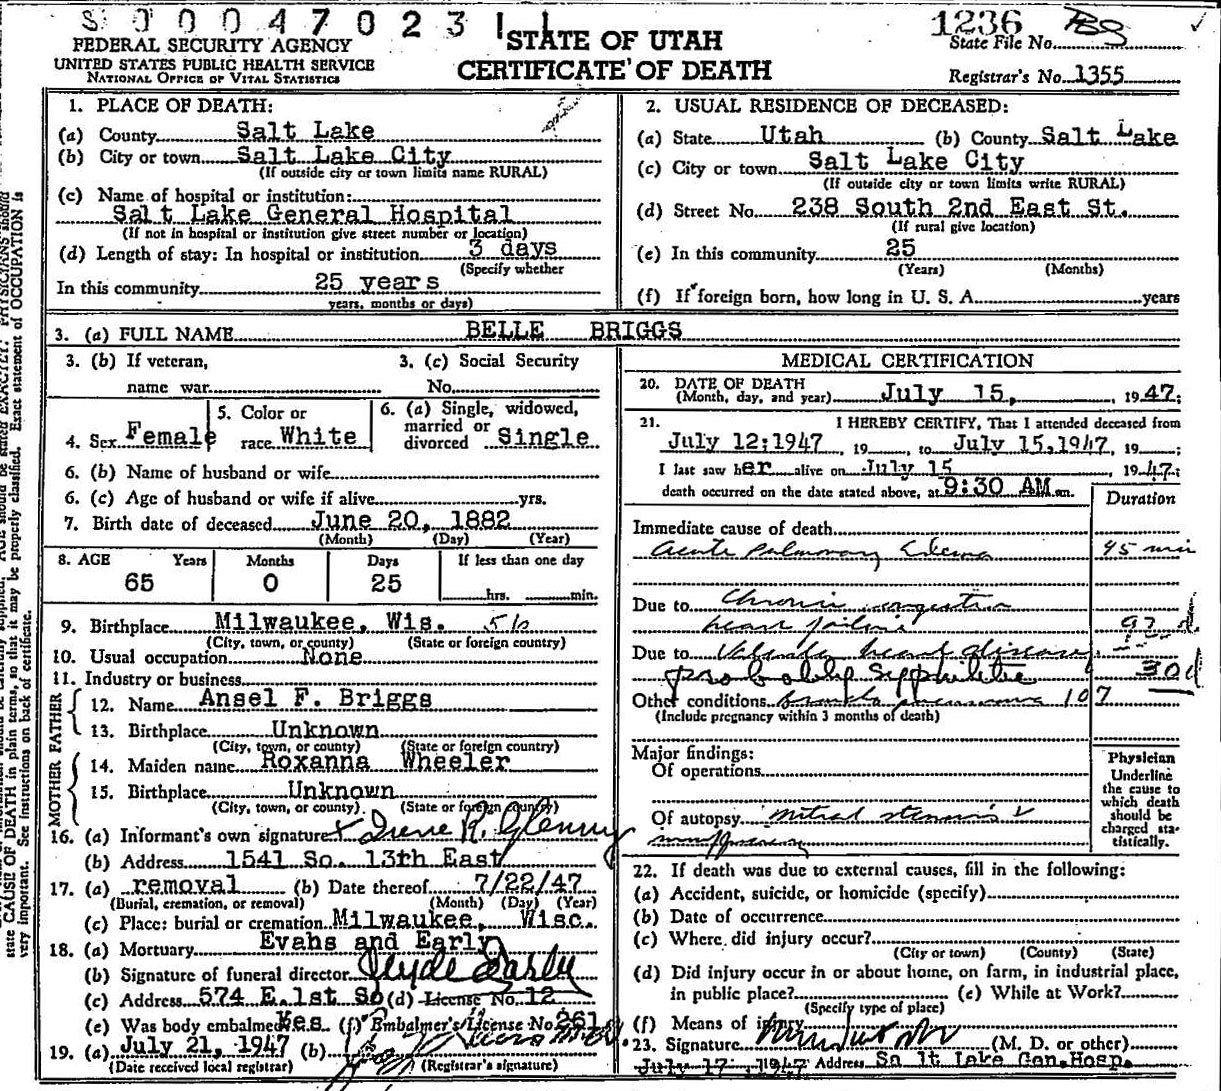 S 0 0 0 4 7 0 2 3 1 1
1236
FEDERAL SECURITY AGENCY
UNITED STATES PUBLIC HEALTH SERVICE
NATIONAL OFFICE OF VITAL STATISTICS
STATE OF UTAH
CERTIFICATE OF DEATH
State File No.
Registrar's No. 1355
1. PLACE OF DEATH:
(a) County Salt Lake
(b) City or town Salt Lake City
(If outside city or town limits name RURAL)
(c) Name of hospital or institution:
Salt Lake General Hospital
(If not in hospital or institution give street number or location)
(d) Length of stay: In hospital or institution 3 days
(Specify whether
In this community 25 years
years, months or days)
2. USUAL RESIDENCE OF DECEASED:
(a) State Utah (b) County Salt Lake
(c) City or town Salt Lake City
(If outside city or town limits write RURAL)
(d) Street No. 238 South 2nd East St.
(If rural give location)
(e) In this community 25
(Years) (Months)
(f) If foreign born, how long in U. S. A. years
3. (a) FULL NAME BELLE BRIGGS
3. (b) If veteran,
name war
3. (c) Social Security
No.
4. Sex Female
5. Color or
race White
6. (a) Single, widowed,
married or
divorced Single
6. (b) Name of husband or wife
6. (c) Age of husband or wife if alive yrs.
7. Birth date of deceased June 20, 1882
(Month) (Day) (Year)
8. AGE Years Months Days If less than one day
65 0 25 hrs. min.
9. Birthplace Milwaukee, Wis.
(City, town, or county) (State or foreign country)
10. Usual occupation None
11. Industry or business
FATHER
12. Name Ansel F. Briggs
13. Birthplace Unknown
(City, town, or county) (State or foreign country)
MOTHER
14. Maiden name Roxanna Wheeler
15. Birthplace Unknown
(City, town, or county) (State or foreign country)
16. (a) Informant's own signature x Irene R. Glenny
(b) Address 1541 So. 13th East
17. (a) removal (b) Date thereof 7/22/47
(Burial, cremation, or removal) (Month) (Day) (Year)
(c) Place: burial or cremation Milwaukee, Wisc.
18. (a) Mortuary Evahs and Early
(b) Signature of funeral director Clyde Early
(c) Address 574 E. 1st So (d) License No. 12
(e) Was body embalmed Yes (f) Embalmer's License No. 261
19. (a) July 21, 1947 (b)
(Date received local registrar) (Registrar's signature)
MEDICAL CERTIFICATION
20. DATE OF DEATH
(Month, day, and year) July 15, 1947;
21. I HEREBY CERTIFY, That I attended deceased from
July 12, 1947, 19 to July 15, 1947, 19;
I last saw her alive on July 15 1947;
death occurred on the date stated above, at 9:30 AM m.
Duration
Immediate cause of death
Acute Pulmonary Edema 45 min
Due to Chronic congestive
heart failure
Due to Valvular heart disease
probably syphilitic 30d
Other conditions broncho pneumonia 107
(Include pregnancy within 3 months of death)
Major findings:
Of operations
Of autopsy mitral stenosis &
Physician
Underline
the cause to
which death
should be
charged sta-
tistically.
22. If death was due to external causes, fill in the following:
(a) Accident, suicide, or homicide (specify)
(b) Date of occurrence
(c) Where did injury occur?
(City or town) (County) (State)
(d) Did injury occur in or about home, on farm, in industrial place,
in public place? (e) While at Work?
(Specify type of place)
(f) Means of injury
23. Signature (M. D. or other)
July 17, 1947 Address Sa lt Lake Gen. Hosp.
state CAUSE OF DEATH in plain terms, so that it may be properly classified. Exact statement of OCCUPATION is
very important. See instructions on back of certificate.